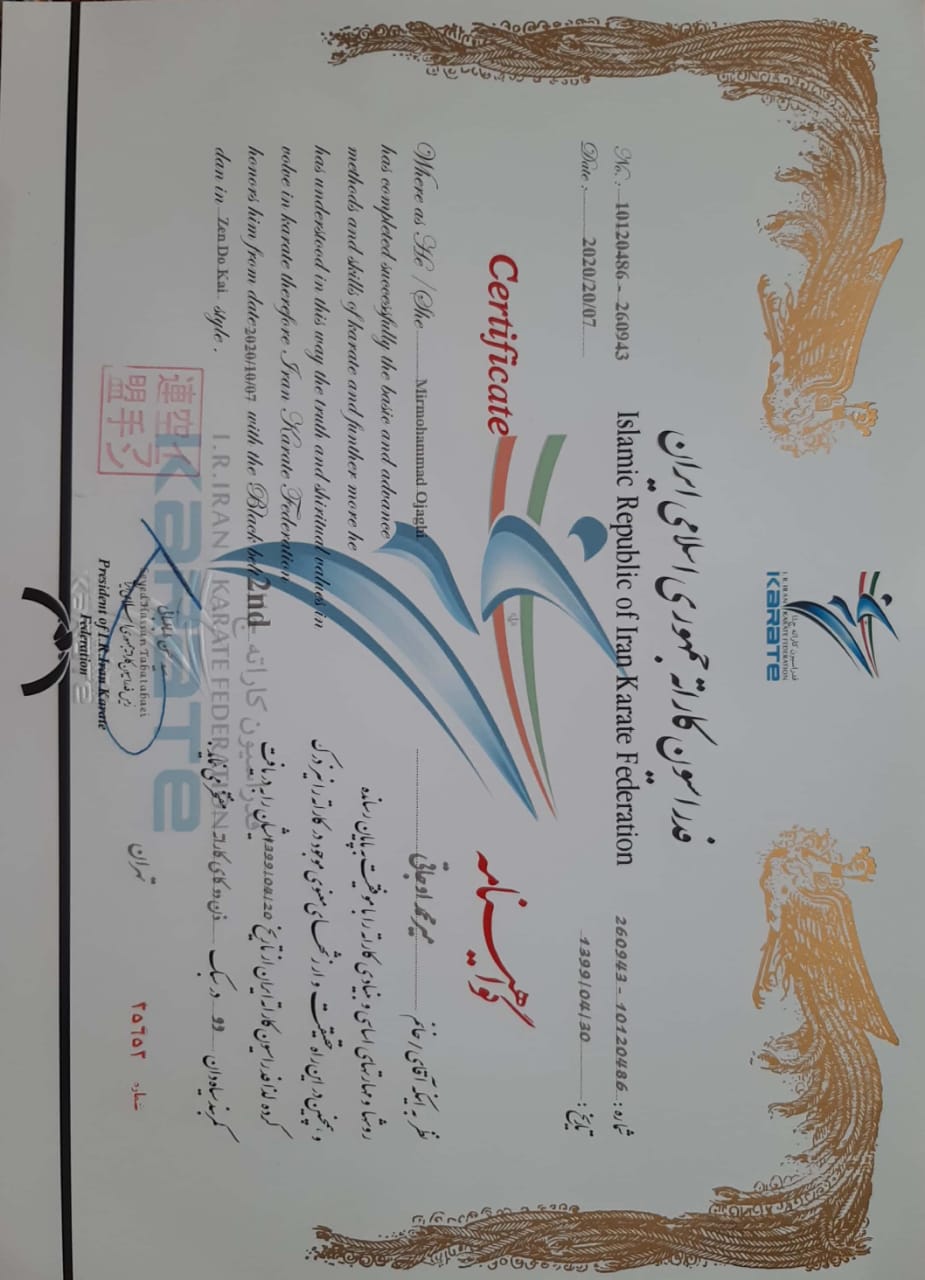 فدراسیون کاراته جمهوری اسلامی ایران
Islamic Republic of Iran Karate Federation
فدراسیون کاراته ج.ا.ا
I.R.IRAN KARATE FEDERATION
Karate
No. : 10120486 - 260943
Date : 2020/20/07
شماره : 260943 - 10120486
تاریخ : 1399/04/30
Certificate
گواهینامه
Where as He / She Mirmohammad Ojaghi
has completed successfully the basic and advance
methods and skills of karate and further more he
has understood in this way the truth and shiritual values in
volve in karate therefore Iran Karate Federation
honors him from date 2020/10/07 with the Black belt 2nd
dan in Zen Do Kai style .
نظر به اینکه آقای / خانم میرمحمد اوجاقی
روشها و مهارتهای اساسی و بنیادی کاراته را با موفقیت به پایان رسانده
و همچنین در این راه حقیقت و ارزشهای معنوی موجود در کاراته را نیز درک
کرده لذا فدراسیون کاراته ایران از تاریخ 1399/04/20 ایشان را به دریافت
کمربند سیاه دان دو در سبک ذن دوکای کاراته مفتخر می نماید
فدراسیون کاراته
I.R.IRAN KARATE FEDERATION
Karate
空手
連盟
Seyed Hassan Tabatabaei
President of I.R.Iran Karate
Federation
تهران
شماره ۲۵۶۵۲